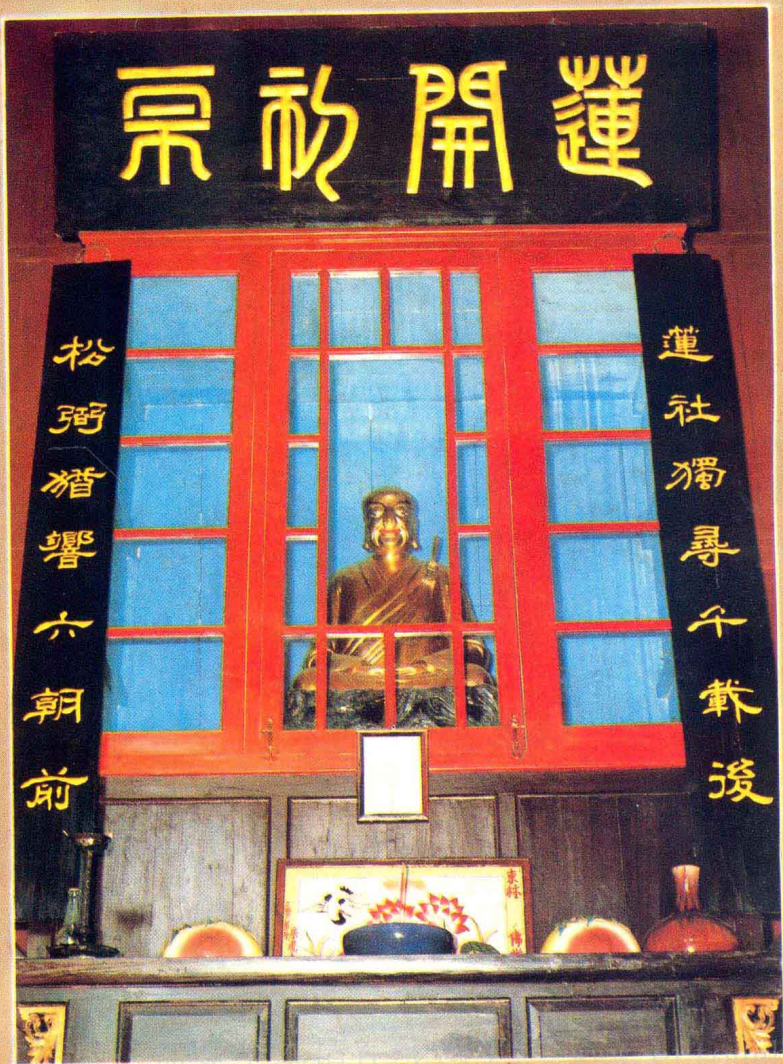 蓮開初宗
蓮社獨尋千載後
松猶響六朝前
東林